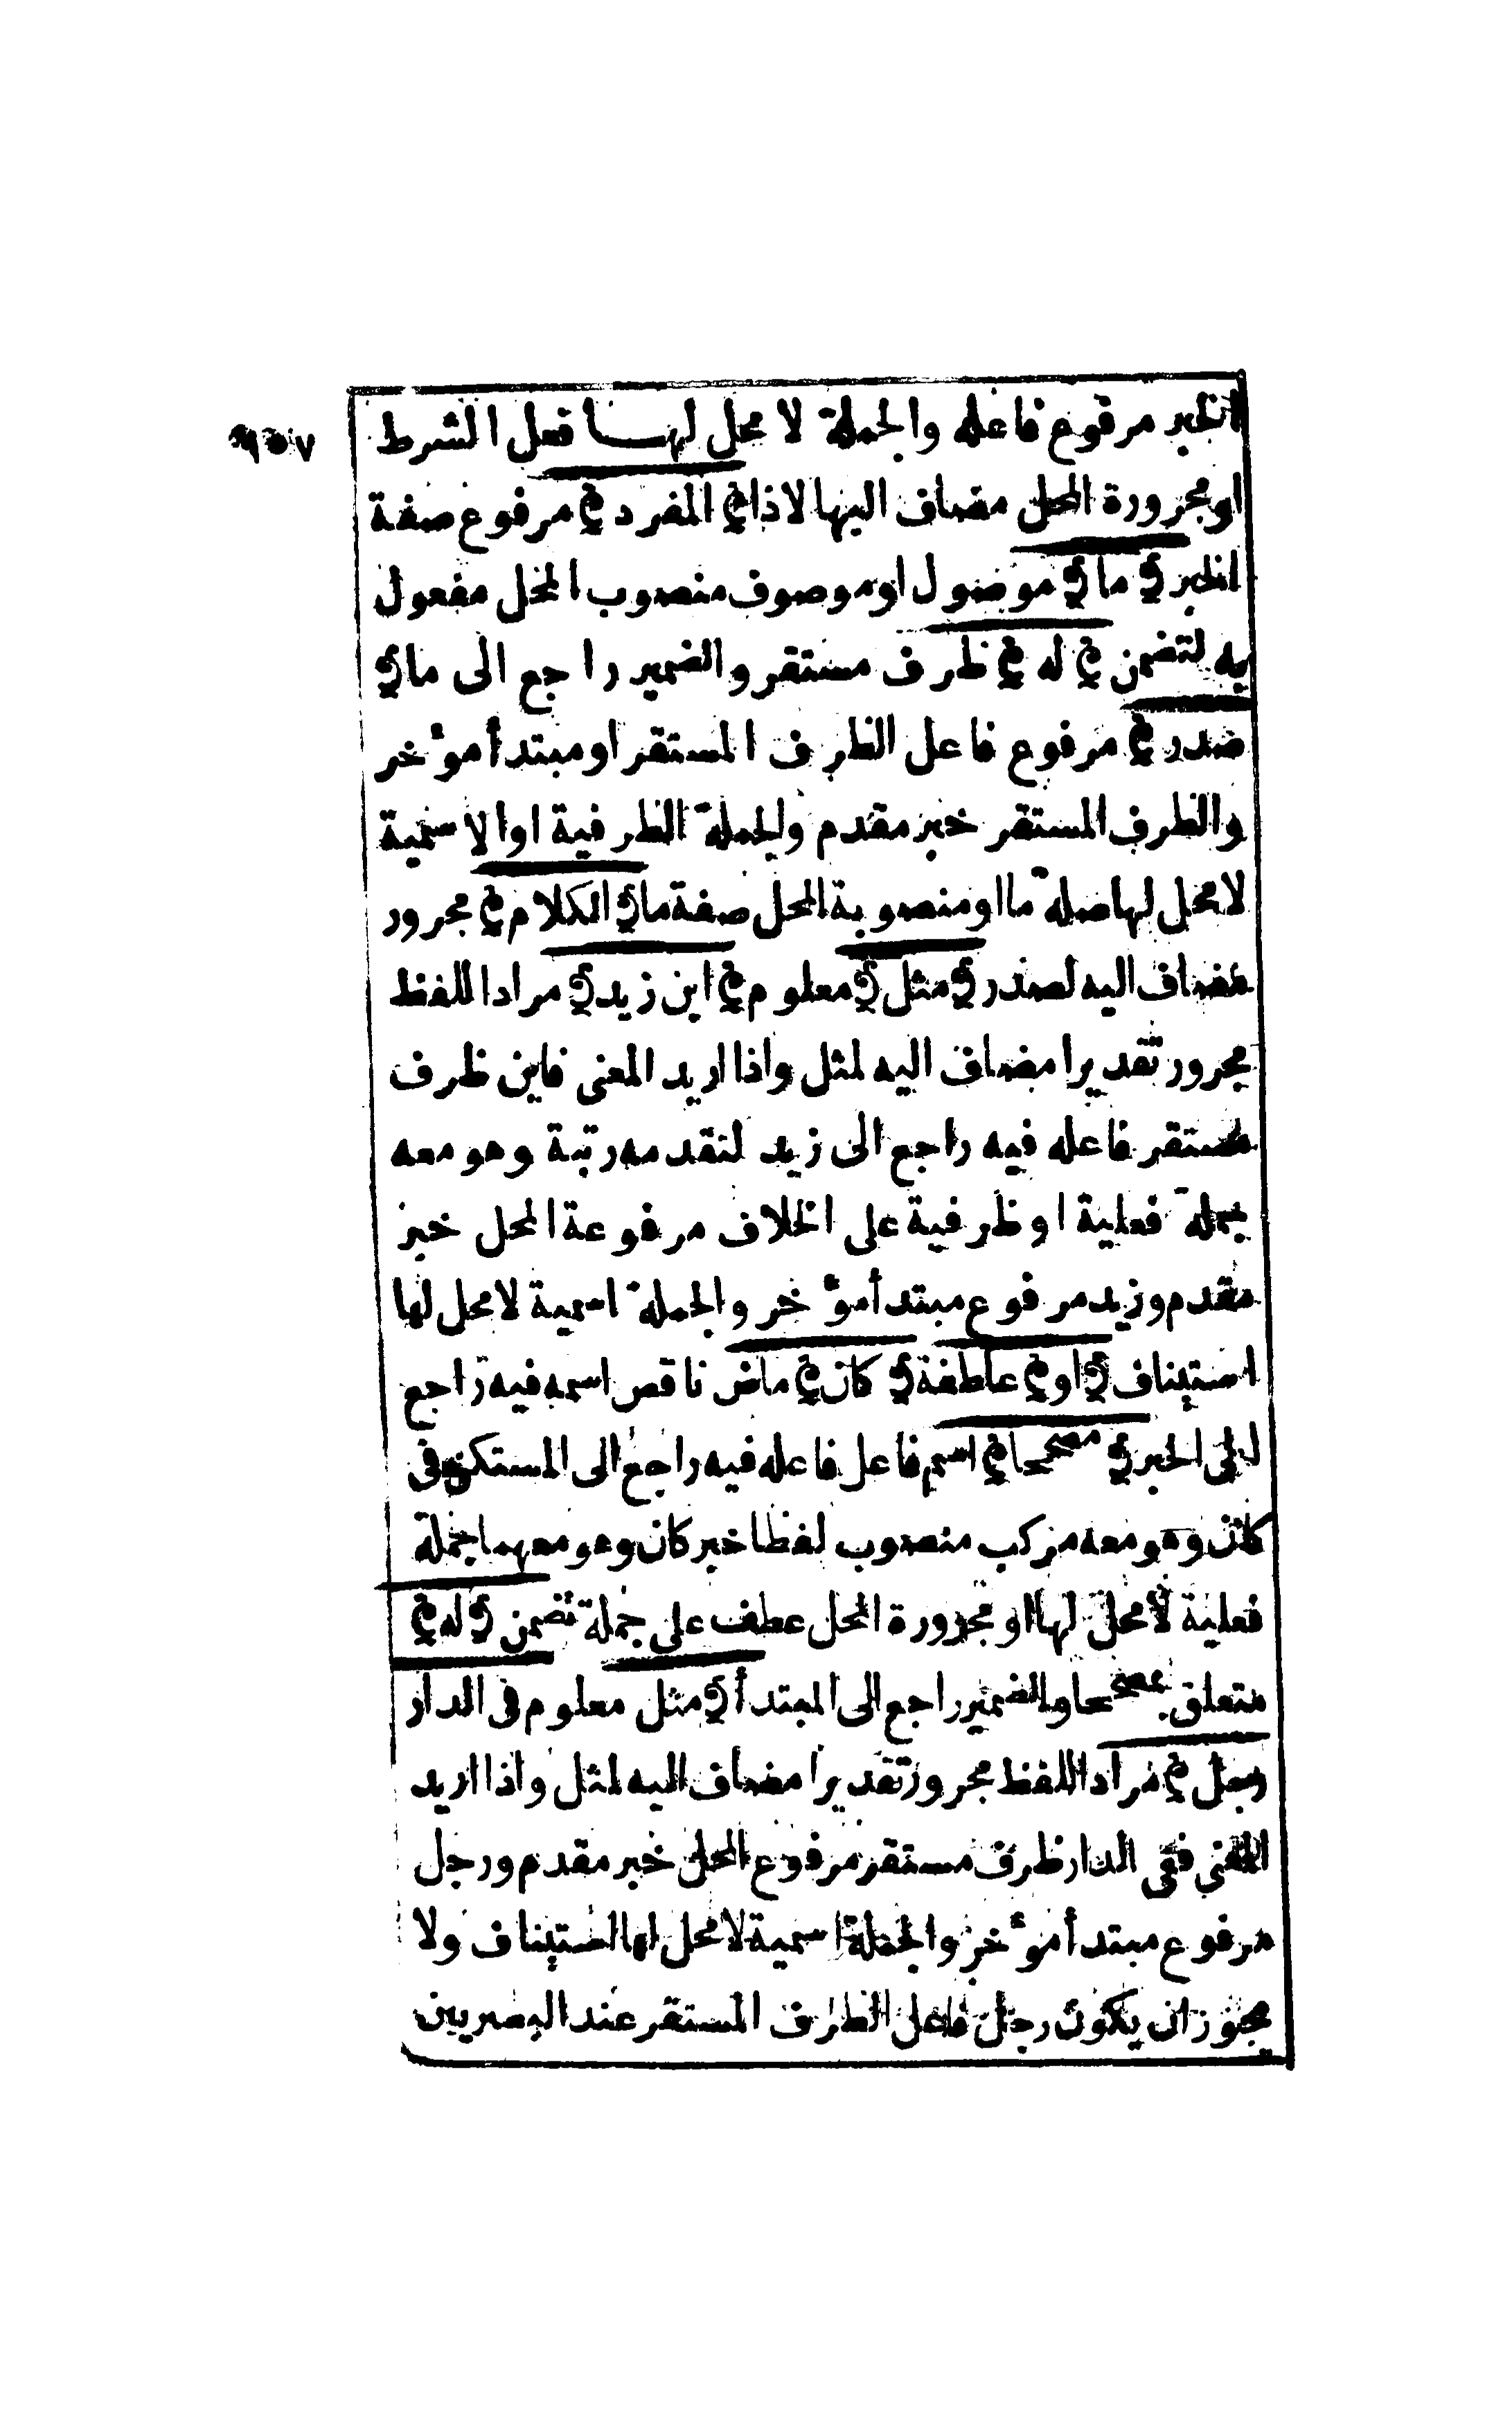 الخبر مرفوع فاعله والجملة لا محل لهـــا فعل الشرط
او مجرورة المحل مضاف اليها لاذا ﴿ المفرد ﴾ مرفوع صفة
الخبر ﴿ ما ﴾ موصول او موصوف منصوب المحل مفعول
به لتضمن ﴿ له ﴾ ظرف مستقر والضمير راجع الى ما ﴿
صدر ﴾ مرفوع فاعل الظرف المستقر او مبتدأ مؤخر
والظرف المستقر خبر مقدم والجملة الظرفية او الاسمية
لا محل لها صلة ما او منصوبة المحل صفة ما ﴿ الكلام ﴾ مجرور
مضاف اليه لصدر ﴿ مثل ﴾ معلوم ﴿ اين زيد ﴾ مراد اللفظ
مجرور تقديرا مضاف اليه لمثل واذا اريد المعنى فاين ظرف
مستقر فاعله فيه راجع الى زيد لتقدمه رتبة وهو معه
جملة فعلية او ظرفية على الخلاف مرفوعة المحل خبر
مقدم وزيد مرفوع مبتدأ مؤخر والجملة اسمية لا محل لها
استيناف ﴿ او ﴾ عاطفة ﴿ كان ﴾ ماض ناقص اسمه فيه راجع
الى الخبر ﴿ مصححا ﴾ اسم فاعل فاعله فيه راجع الى المستكن فى
كان وهو معه مركب منصوب لفظا خبر كان وهو معهما جملة
فعلية لا محل لها او مجرورة المحل عطف على جملة تضمن ﴿ له ﴾
متعلق بمصححا والضمير راجع الى المبتدأ ﴿ مثل معلوم فى الدار
رجل ﴾ مراد اللفظ مجرور تقديرا مضاف اليه لمثل واذا اريد
المعنى ففى الدار ظرف مستقر مرفوع المحل خبر مقدم ورجل
مرفوع مبتدأ مؤخر والجملة اسمية لا محل لها استيناف ولا
يجوز ان يكون رجل فاعل الظرف المستقر عند البصريين